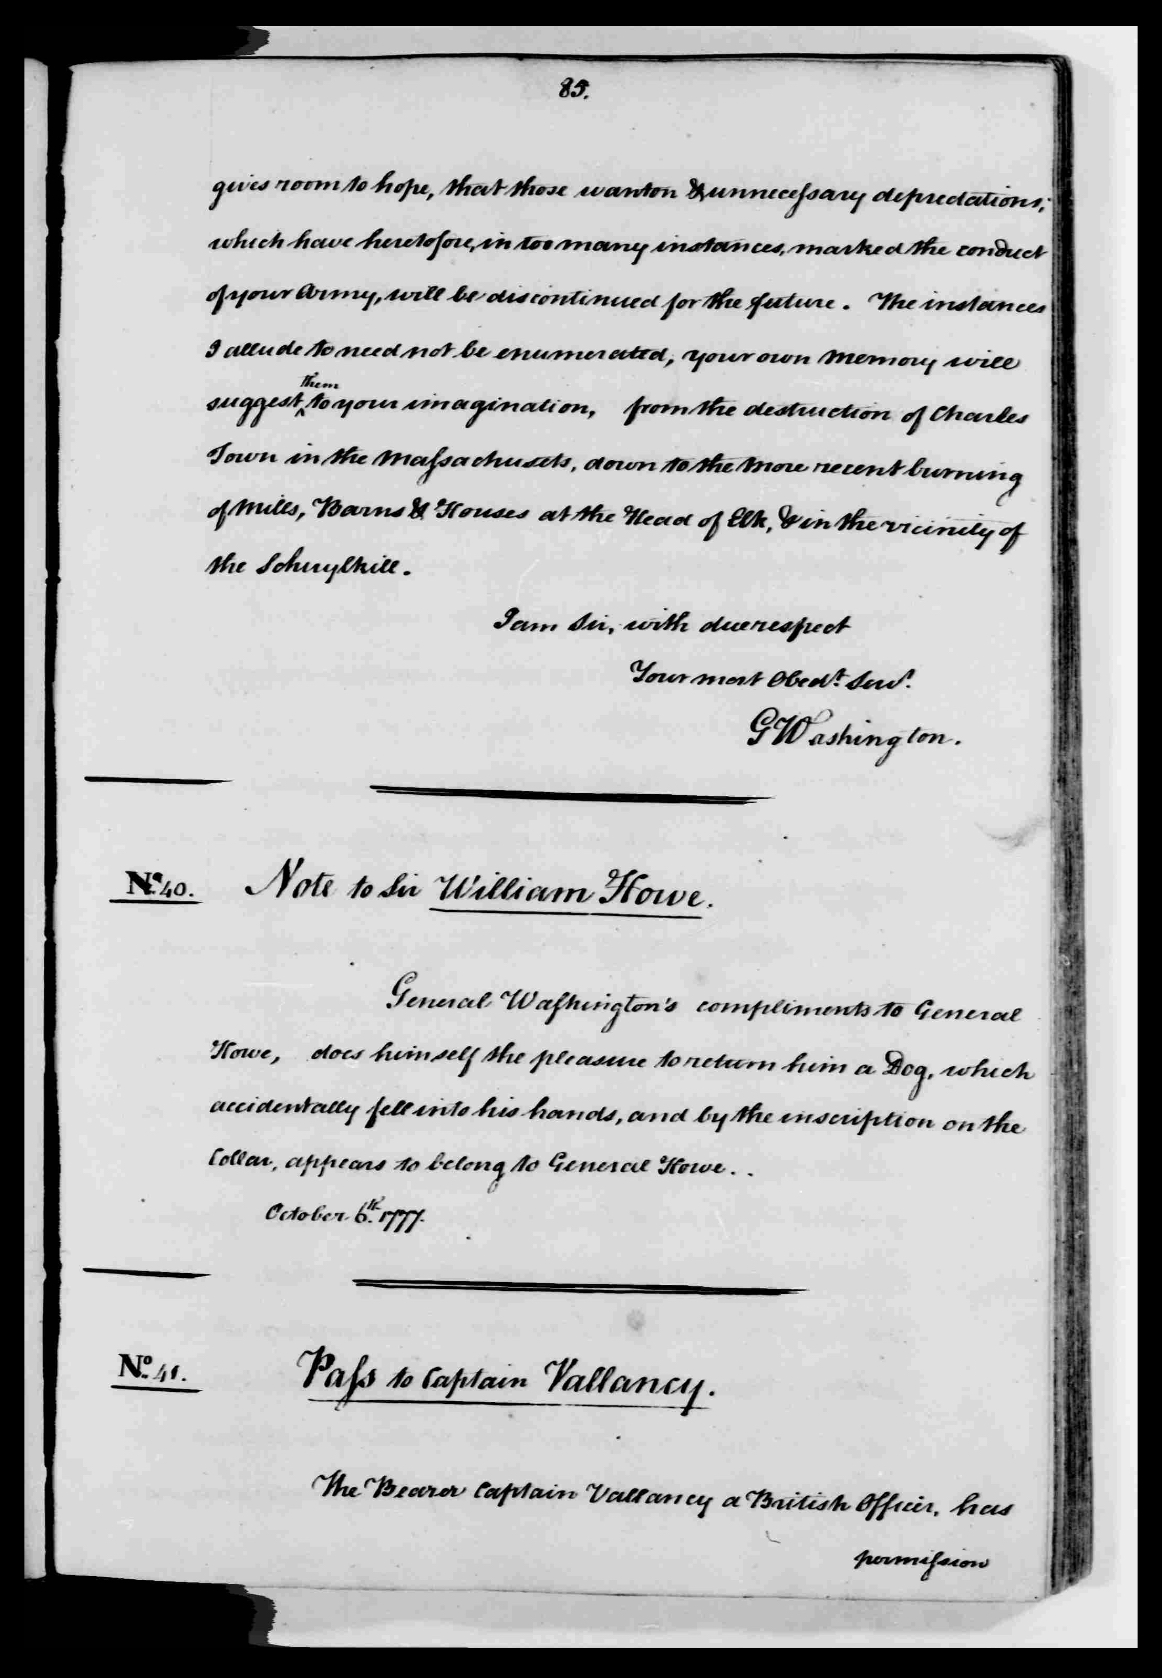 85.
gives room to hope, that those wanton & unnecessary depredations;
which have heretofore, in too many instances, marked the conduct
of your Army, will be discontinued for the future. The instances
I allude to need not be enumerated, your own Memory will
suggest them to your imagination, from the destruction of Charles
Town in the Massachusets, down to the more recent burning
of Mills, Barns & Houses at the Head of Elk, & in the vicinity of
the Schuylkill.
I am Sir, with due respect
Your most Obedt. Servt.
GWashington.
No. 40. Note to Sir William Howe.
General Washington's compliments to General
Howe, does himself the pleasure to return him a Dog, which
accidentally fell into his hands, and by the inscription on the
Collar, appears to belong to General Howe..
October 6th. 1777.
No. 41. Pass to Captain Vallancy.
The Bearer Captain Vallancy a British Officer, has
permission